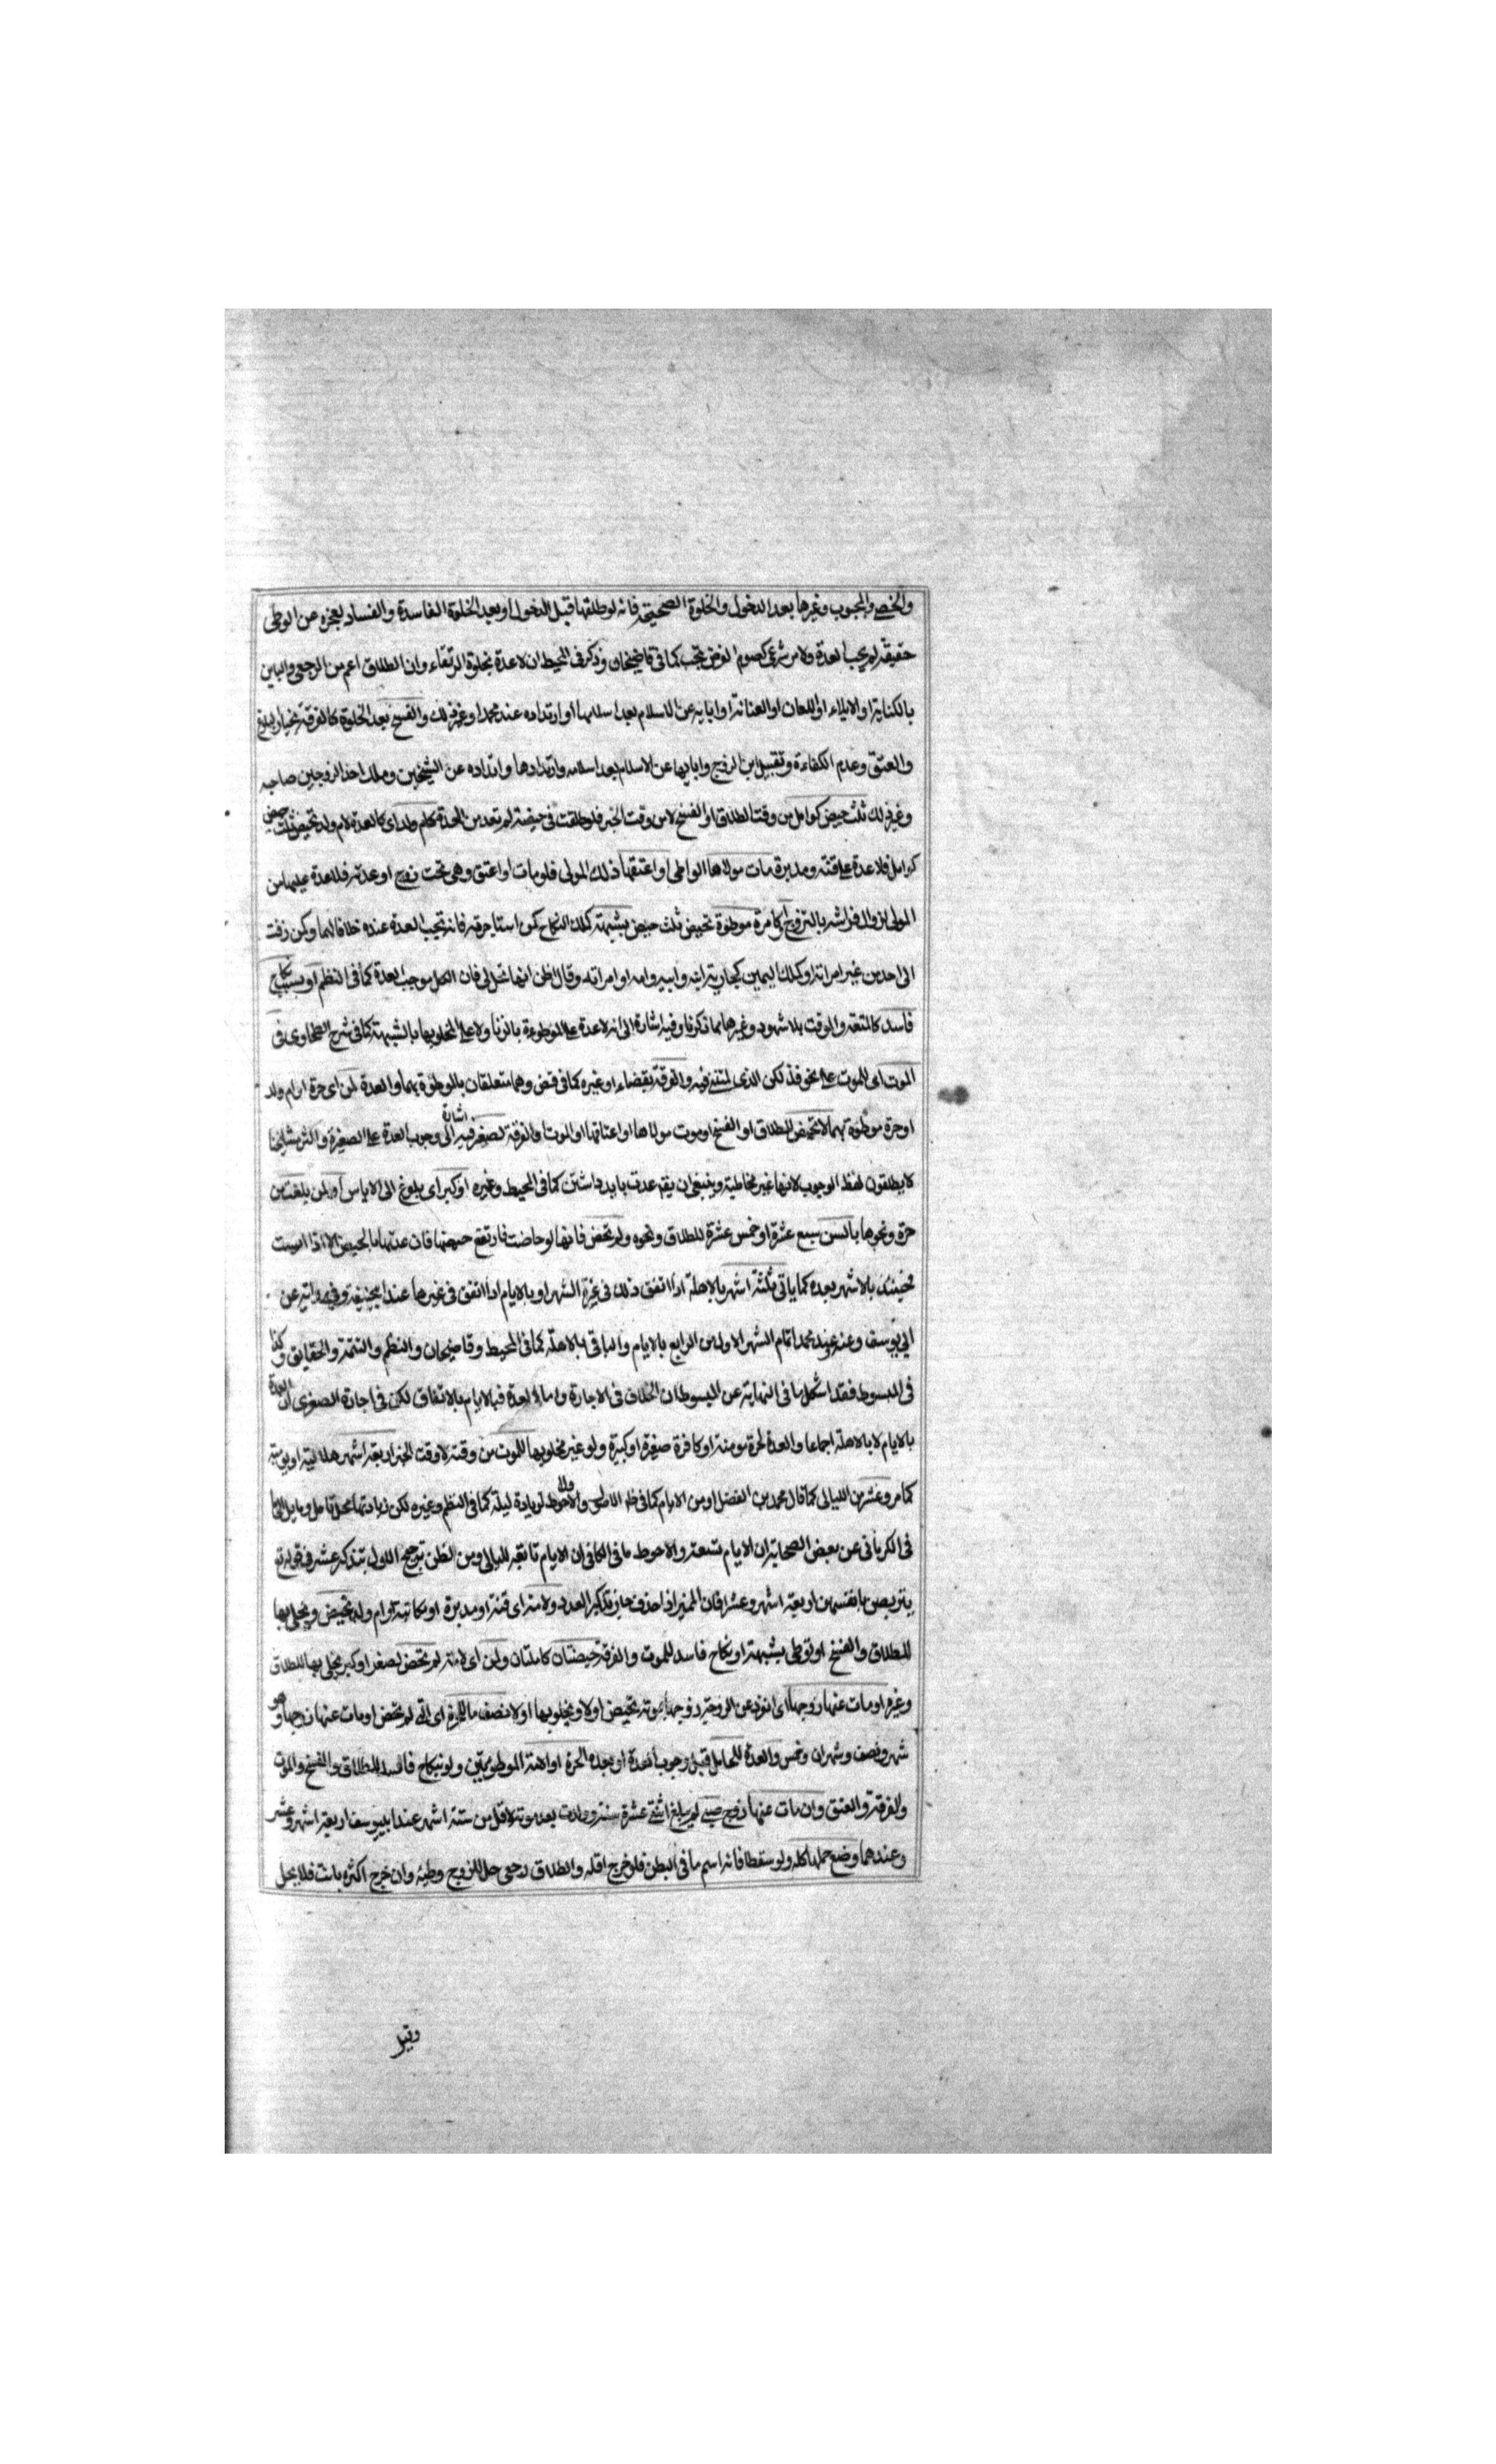 والخصي والمجبوب وغيرها بعد الدخول والخلوة الصحيحة فانه لو طلقها قبل الدخول او بعد الخلوة الفاسدة والفساد بعجزه عن الوطى
حقيقة لم يجب العدة ولامر شرعي كصوم الفرض تجب كما في قاضيخان وذكر في المحيط ان لا عدة بخلوة الرتقاء وان الطلاق اعم من الرجعي والباين
بالكناية او الايلاء او اللعان او العنانة او ابايه عن الاسلام بعد اسلامها او ارتداده عند محمد او غير ذلك والفسخ بعد الخلوة كالفرقة بخيار بلوغ
والعتق وعدم الكفاءة وتقبيل ابن الزوج وابايها عن الاسلام بعد اسلامه وارتدادها وارتداده عن الشيخين وملك احد الزوجين صاحبه
وغير ذلك ثلث حيض كوامل من وقت الطلاق او الفسخ لا من وقت الخبر فلو طلقت في حيضة لم تعد من العدة كام ولد اى كالعدة لام ولد تحيض ثلث حيض
كوامل فلا عدة على قنة ومدبرة مات مولاها الواطى او اعتقها ذلك المولى فلو مات او اعتق وهى تحت زوج او عدته فلا عدة عليها من
المولى لزوال فراشه بالتزوج او كامرة موطوة تحيض ثلث حيض بشبهة كملك النكاح كمن استاجرته فانه تجب العدة عنده خلافا لهما وكمن زفت
الى احد من غير امراته او كملك اليمين كجارية ابنه وابيه وامه او امراته وقال ظن انها تحل لى فان الكل موجب العدة كما في النظم او بسبب نكاح
فاسد كالمتعة والموقت بلا شهود وغيرها مما ذكرنا وفيه اشارة الى انه لا عدة على الموطوءة بالزنا ولا على المخلو بها بالشبهة كما في شرح الطحاوى في
الموت اى للموت على نحو فذلكن الذى لمتننى فيه والفرقة بقضاء او غيره كما في قض وهما متعلقان بالموطوة بهما والعدة لمن اى حرة او ام ولد
او حرة موطوة بهما لا تحيض للطلاق او الفسخ او موت مولاها او اعتاقها او الموت والفرقة لصغر فيه اشارة الى وجوب العدة على الصغيرة واكثر مشايخنا
لا يطلقون لفظ الوجوب لانها غير مخاطبة وينبغي ان يقع عدت بايد داشتن كما في المحيط وغيره او كبر اى بلوغ الى الاياس او لمن بلغت من
حرة ونحوها بالسن سبع عشرة او خمس عشرة للطلاق ونحوه ولم تحض فانها لو حاضت فارتفع حيضها فان عدتها بالحيض الا اذا ايست
فحينئذ بالاشهر بعده كما ياتى ثلثة اشهر بالاهلة اذا اتفق ذلك في غرة الشهر او بالايام اذا اتفق في غيرها عند ابيحنيفة وفى رواية عن
ابي يوسف وعنه وعند محمد اتمام الشهر الاول من الرابع بالايام والباقى بالاهلة كما في المحيط وقاضيخان والنظم والتتمة والحقايق وكذا
في المبسوط فقد اشكل ما في النهاية عن المبسوط ان الخلاف في الاجارة واما العدة فبالايام بالاتفاق لكن في اجارة الصغرى ان العدة
بالايام لا بالاهلة اجماعا والعدة لحرة مومنة او كافرة صغيرة او كبيرة ولو غير مخلو بها للموت من وقته لا وقت الخبر اربعة اشهر هلالية او يومية
كما مر وعشر من الليالى كما قال محمد بن الفضل او من الايام كما في ظ الاصول والاول احوط لزيادة ليلة كما في النظم وغيره لكن زيادتها محل تامل
في الكرمانى عن بعض الصحابة ان الايام تسعة والاحوط ما في الكافى ان الايام تابعة لليالى ومن الظن ترجيح الاول بتذكير عشر في قوله تع
يتربصن بانفسهن اربعة اشهر وعشرا فان المميز اذا حذف جاز تذكير العدد ولامة اى قنة او مدبرة او مكاتبة او ام ولد تحيض ويخلى بها
للطلاق والفسخ او توطى بشبهة او نكاح فاسد للموت والفرقة حيضتان كاملتان ولمن اى لامة لم تحض لصغر او كبر يخلى بها للطلاق
وغيره او مات عنها زوجها اى انزعن الزوجية زوجها بموته تحيض او لا ويخلو بها او لا نصف ما للحرة اى التى لم تحض او مات عنها زوجها وهو
شهر ونصف وشهران وخمس والعدة للحامل قبل وجوب العدة او بعده الحرة او الامة الموطويتين ولو بنكاح فاسد للطلاق والفسخ والموت
والفرقة والعتق وان مات عنها زوج صبي لم يبلغ اثنتى عشرة سنة وولدت بعد موته لاقل من ستة اشهر عند ابييوسف اربعة اشهر وعشر
وعندهما وضع حملها كله ولو سقطا فانه اسم ما في البطن فلو خرج اقله والطلاق رجعى حل للزوج وطيه وان خرج اكثره بانت فلا يحل